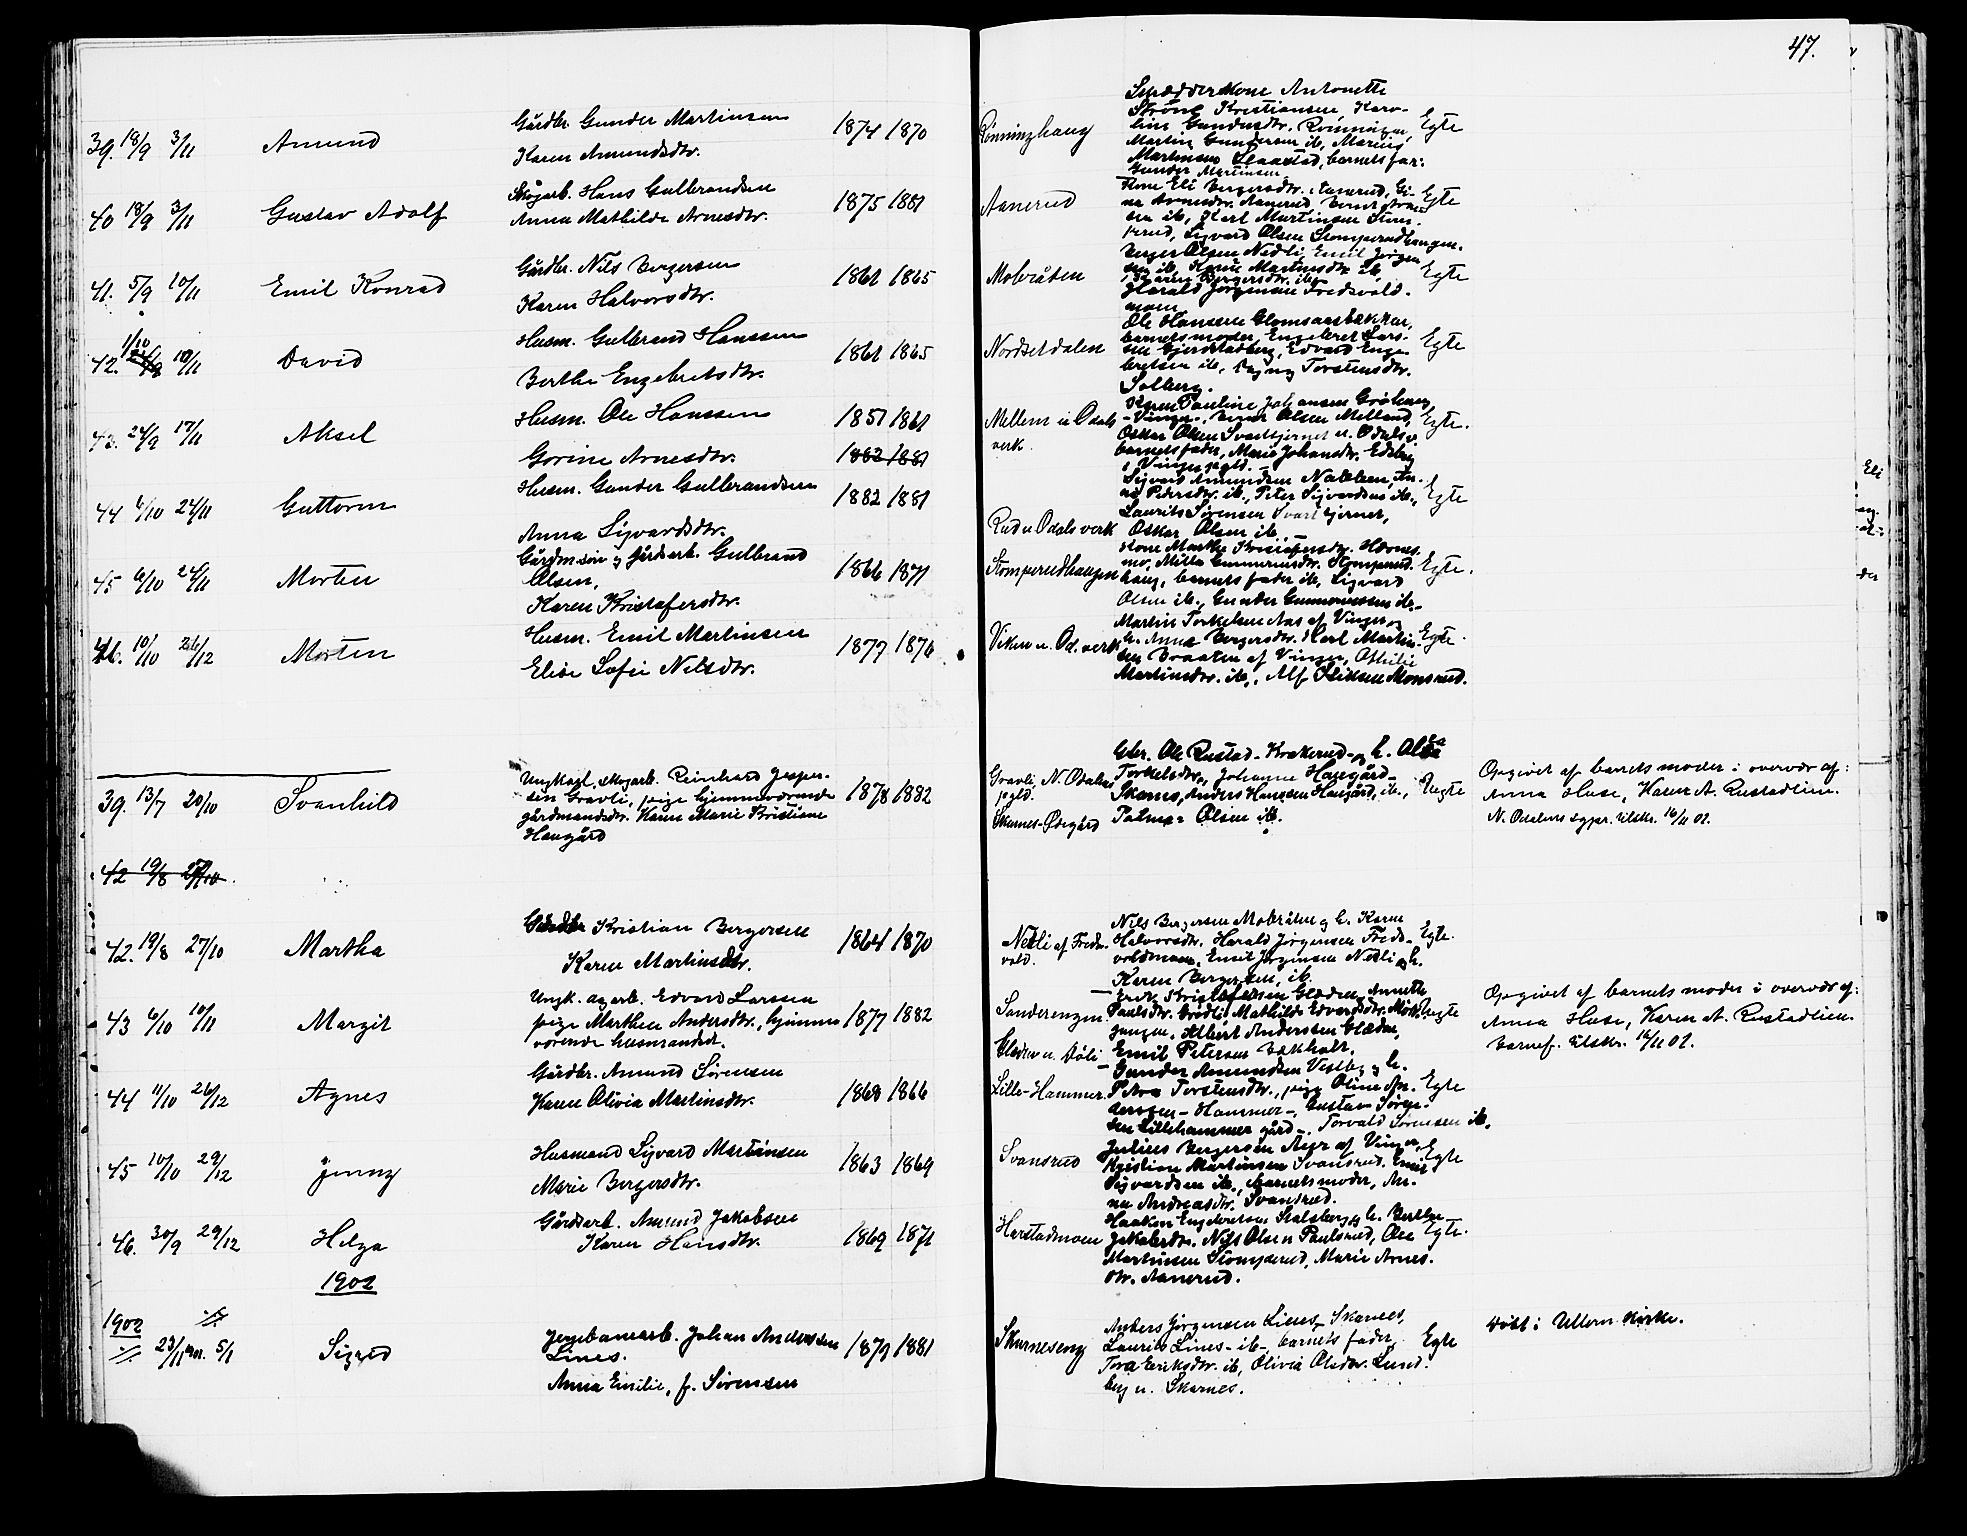 47.
39. 18/9 3/11 Amund
Gårdbr. Gunder Martinsen
Karen Amundsdtr.
1874 1870
Rønninghaug
Smedderkone Antonette
Strøm Kristiansen, Karo-
line Gundersdtr. Rønningen,
Martin Gundersen ib, Marius
Martinsen Slaastad, barnets far:
Gunder Martinsen
Egte
40 18/9 3/11 Gustav Adolf
Skogarb. Hans Gulbrandsen
Anna Mathilde Arnesdtr.
1875 1881
Aanerud
Kone Eli Bergersdtr. Aanerud, Gi-
na Arnesdtr. Aanerud, Bernt Arne-
sen ib, Karl Martinsen
Sigvard Olsen Stomperudhaugen.
Egte
41. 5/9 10/11 Emil Konrad
Gårdbr. Nils Bergersen
Karen Halvorsdtr.
1861 1865
Mobråten
Berger Olsen Nedli, Emil Jørgen-
sen ib, Karen Martinsdtr ib,
Karen Bergersdtr. ib,
Harald Jørgensen Fredsvold-
moen
Egte
42. 1/10 10/11 David
Husm. Gulbrand Hanssen
Berthe Engebretsdtr.
1861 1865
Nordsetdalen
Ole Hanssen Glomsaasbakken,
barnets moder, Engebret Lars-
sen Gjerstadberg, Edvard Enge-
bretsen ib, Torstensdtr.
Solberg.
Egte
43. 24/9 17/11 Aksel
Husm. Ole Hanssen
Gorine Arnesdtr.
1851 1861
1882 1881
Mellem u Odals
verk.
Karen Pauline Johansen
- Vinger-, Bernt Olsen Melland,
Oskar Olsen Svartkjernet u. Odalsv.
barnets fader, Marie Johansdtr.
i Vinger pgld. -
Egte.
44 6/10 24/11 Guttorm
Husm. Gunder Gulbrandsen
Anna Sigvardsdtr.
1882 1881
Rud u Odals verk
Sigvard Amundsen Nabben, An-
na Pedersdtr. ib., Peter Sigvardsen ib.,
Laurits Sørensen Svartkjernet,
Oskar Olsen ib. -
Egte
45 6/10 24/11 Morten
Gårdmsøn og gårdsarb. Gulbrand
Olsen,
Karen Kristofersdtr.
1866 1871
Stomperudhaugen
Kone Marthe Kristofersdtr. Hernes-
mo, Milla Gunneriusdtr. Stomperud-
haug, barnets fader ib, Sigvard
Olsen ib., Gunder Gunneriussen ib.-
Egte.
46. 10/10 26/12 Morten
Husm. Emil Martinsen
Elise Sofie Nilsdtr.
1877 1876
Viken u. Od. verk
Martin Torkelsen Aas af Vinger og
h. Anna Bergersdtr. Karl Martin-
sen Braaten af Vinger, Othilie
Martinsdtr. ib., Alf Monsrud.
Egte.
39. 13/7 20/10 Svanhild
Ungkarl, skogarb. Reinhard Jesper-
sen Gravli, pige hjemmeværende
gårdmandsdtr. Karen Marie Kristiane
Haugård
1878 1882
Gravli, N. Odalens
pgld.
Skarnes-Ødegård
Gbr. Ole Rustad-Krokerud- og h. Olea
Torkelsdtr., Johanne Haugård-
Skarnes, Anders Hanssen Haugård, ib.,
Palmer Olsen ib.
Uegte
Opgivet af barnets moder i overvær af:
Anna Huse, Karen A. Rustadlien.
N. Odalens sgpr. tilskr. 16/11 01.
42 19/8 27/10.
42. 19/8 27/10 Martha
Gårdbr Kristian Bergersen
Karen Martinsdtr.
1864 1870
Nedli af Freds-
vold.
Nils Bergersen Mobråten og h. Karen
Halvorsdtr. Harald Jørgensen Freds-
voldmoen, Emil Jørgensen Nedli og h.
Karen Bergersen, ib.
Egte.
43 6/10 10/11 Margit
Ungk. agarb. Edvard Larssen
pige Marthea Andersdtr., hjemme
værende husmandsd.
1877 1882
Sanderengen
Glæden u. Døli
Erik Kristofersen Glæden, Annette
Paulsdtr. Brødli, Mathilde Edvardsdtr.
Albert Anderssen Glæden,
Emil Petersen Bækholt.
Uegte
Opgivet af barnets moder i overvær af:
Anna Huse, Karen A. Rustadlien.
Barnef. tilskr. 16/11 01.
44 11/10 26/12 Agnes
Gårdbr. Amund Sørensen
Karen Olivia Martinsdtr.
1868 1866
Lille-Hammer.
Gunder Amundsen Vestby og h.
Petra Torstensdtr., pige Oline An-
dersen - Hammer -, Gustav Søren-
sen Lillehammer gård -. Torvald Sørensen ib.
Egte
45 10/10 29/12 Jenny
Husmand Sigvard Martinsen
Marie Bergersdtr.
1863 1869
Svansrud
Julius Bergersen af Vinger,
Kristian Martinsen Svansrud, Emil
Sigvardsen ib., barnets moder, An-
na Andreasdtr. Svansrud.
Egte
46. 30/9 29/12 Helga
Gårdsarb. Amund Jakobsen
Karen Hansdtr.
1869 1871
Harstadmoen
Haaken Engebretsen Stalsberg og h. Berthe
Jakobsdtr. Nils Olsen Paulsrud, Ole
Martinsen Stomperud, Marie Arnes-
dtr. Aanerud.
Egte.
1902
1902
23/11 5/1 Sigurd
Jernbanearb. Johan Anderssen
Lines.
Anna Emilie, f. Sørensen
1879 1881
Skarneseng
Anders Jørgensen Lines, Skarnes,
Laurits Lines - ib -, barnets fader,
Tora Eriksdtr. ib, Olivia Olsdtr. Lund-
berg u. Skarnes.
Egte
Døbt i Ullern Kirke.